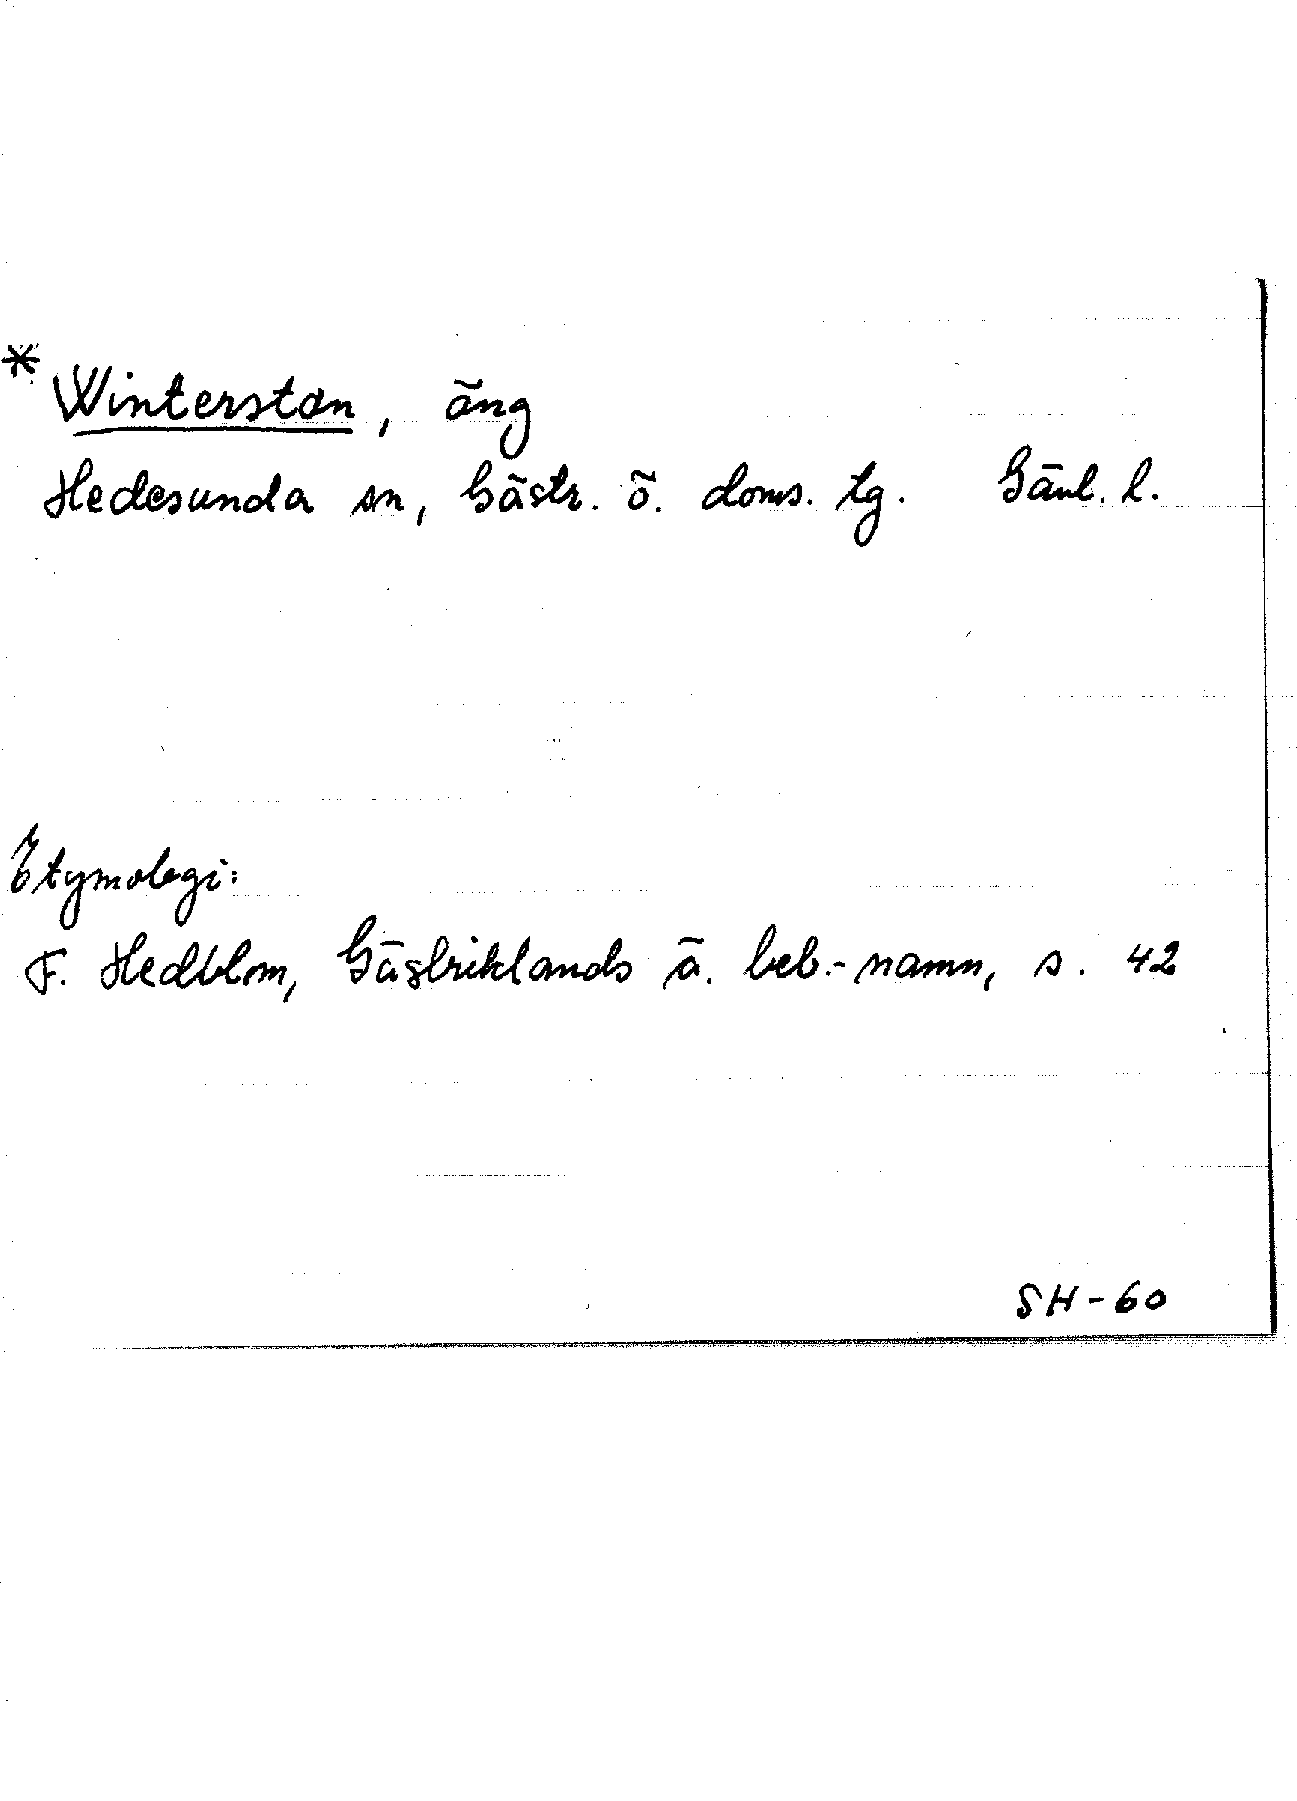 * Winterstan, äng
Hedesunda sn, Gästr. ö. doms. tg. Gävl. l.
Etymologi:
F. Hedblom, Gästriklands ä. beb.-namn, s. 42
SH-60